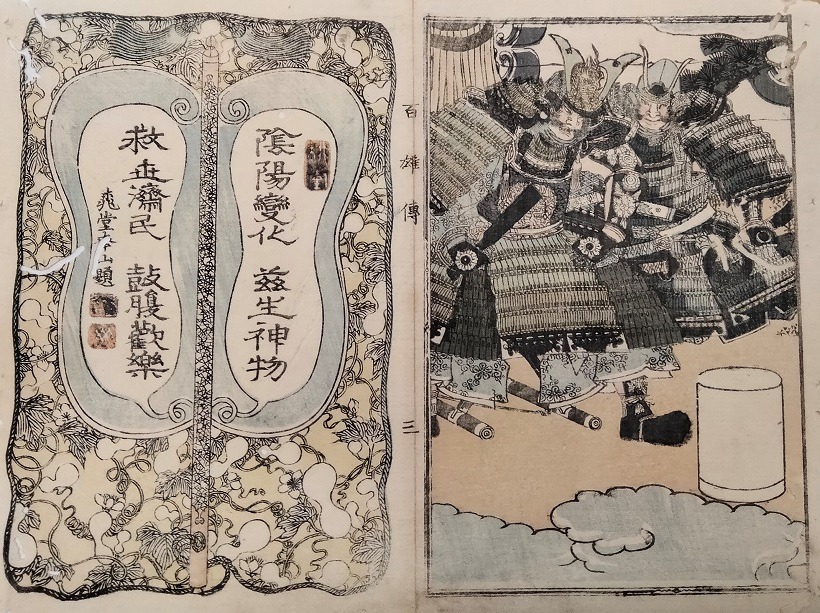 百雄傳
三
陰陽變化 茲生神物
救世濟民 鼓腹歡樂
堂山題